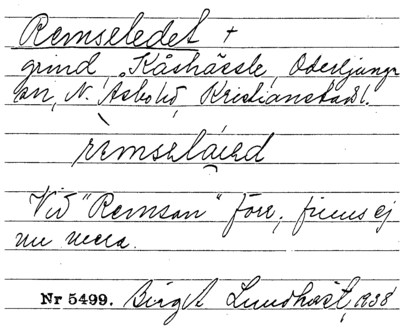 Remseledet +
grind, Kåshässle, Oderljunga
sn, N. Åsbo hd, Kristianstads l.
rèmselàied
Vid "Remsan" förr, finns ej
nu mera.
Nr 5499. Birgit Lundqvist, 1938